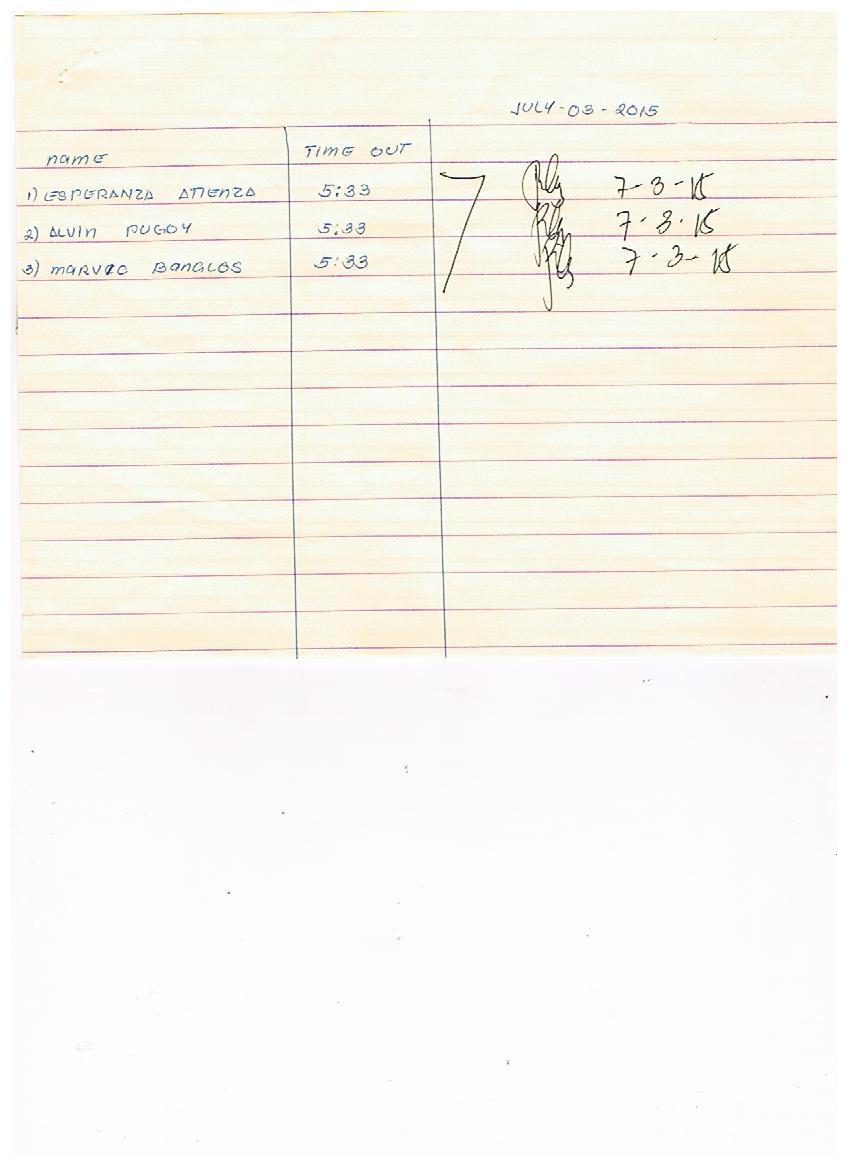 JULY-03-2015
name TIME OUT
1) ESPERANZA ATIENZA 5:33 7-3-15
2) ALVIN PUGOY 5:33 7-3-15
3) marvic Banalos 5:33 7-3-15